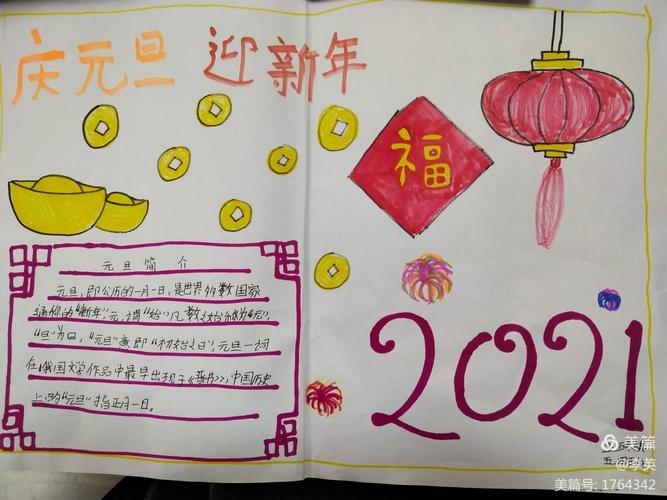 庆元旦 迎新年
福
元旦简介
元旦，即公历的一月一日，是世界多数国家
通称的“新年”。元，谓“始”，凡数之始称为“元”，
“旦”为日，“元旦”意即“初始之日”，元旦一词
在我国文学作品中最早出现于《晋书》，中国历史
上的“元旦”指正月一日。
2021
美篇
@李英
美篇号: 1764342